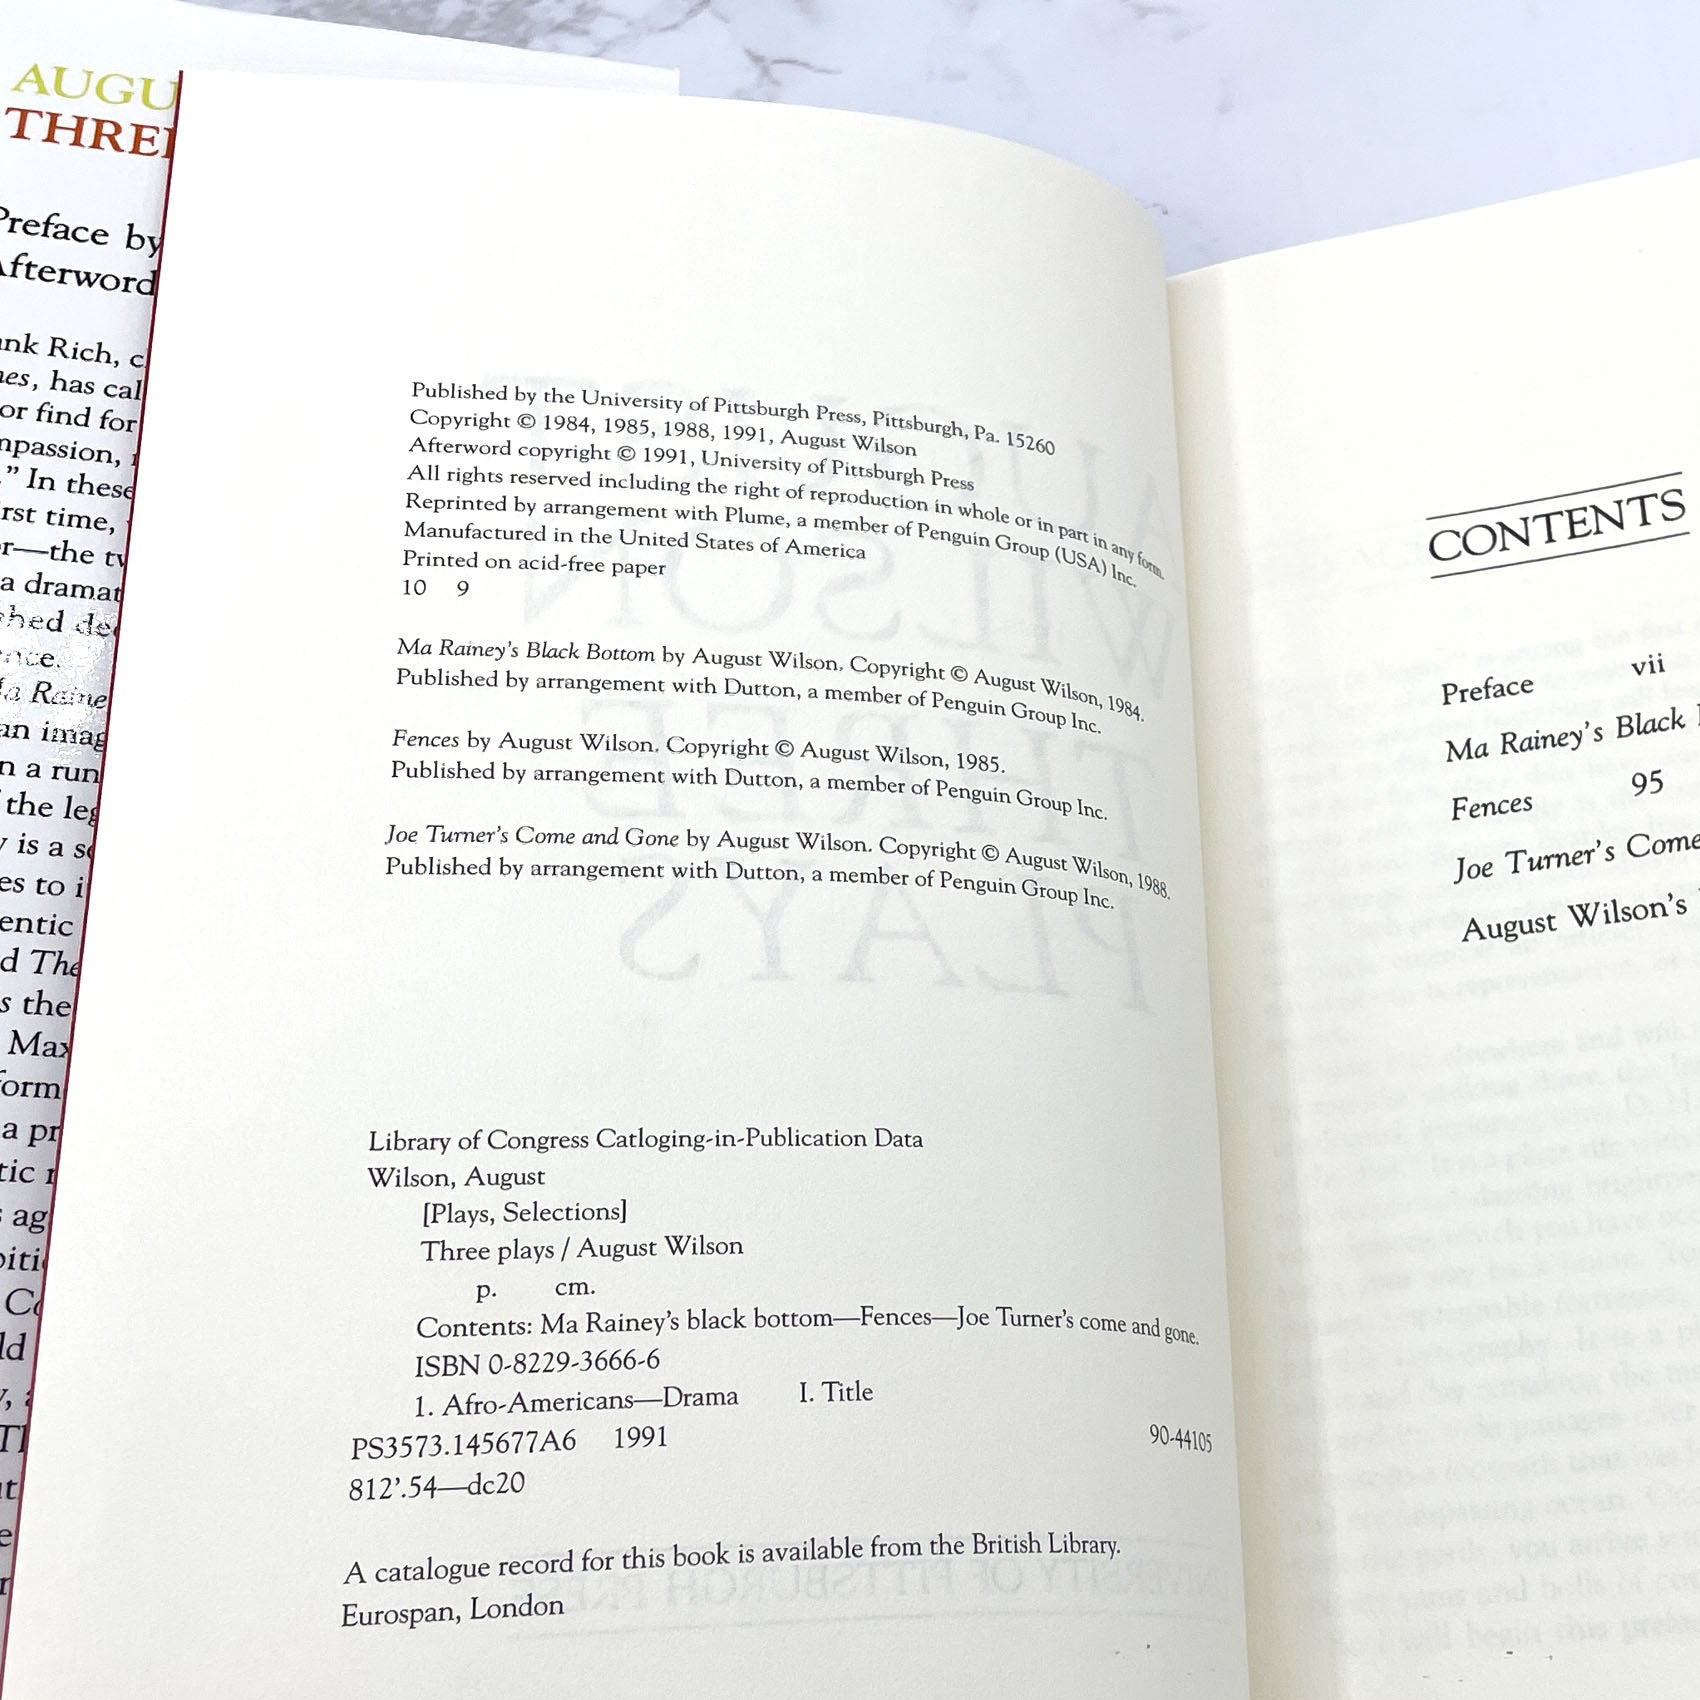 AUGU
THREE
Preface by
Afterword
ank Rich, c
nes, has cal
or find for
mpassion,
." In these
rst time,
r—the tw
a dramat
shed dec
ence.
Ma Raine
an imag
n a run
f the leg
y is a se
es to i
entic
d The
s the
Max
form
a pr
tic r
s ag
bitio
Co
ld
Published by the University of Pittsburgh Press, Pittsburgh, Pa. 15260
Copyright © 1984, 1985, 1988, 1991, August Wilson
Afterword copyright © 1991, University of Pittsburgh Press
All rights reserved including the right of reproduction in whole or in part in any form.
Reprinted by arrangement with Plume, a member of Penguin Group (USA) Inc.
Manufactured in the United States of America
Printed on acid-free paper
10 9
Ma Rainey's Black Bottom by August Wilson. Copyright © August Wilson, 1984.
Published by arrangement with Dutton, a member of Penguin Group Inc.
Fences by August Wilson. Copyright © August Wilson, 1985.
Published by arrangement with Dutton, a member of Penguin Group Inc.
Joe Turner's Come and Gone by August Wilson. Copyright © August Wilson, 1988.
Published by arrangement with Dutton, a member of Penguin Group Inc.
Library of Congress Catloging-in-Publication Data
Wilson, August
[Plays, Selections]
Three plays / August Wilson
p. cm.
Contents: Ma Rainey's black bottom—Fences—Joe Turner's come and gone.
ISBN 0-8229-3666-6
1. Afro-Americans—Drama I. Title
PS3573.145677A6 1991 90-44105
812'.54—dc20
A catalogue record for this book is available from the British Library.
Eurospan, London
CONTENTS
Preface vii
Ma Rainey's Black
Fences 95
Joe Turner's Come
August Wilson's